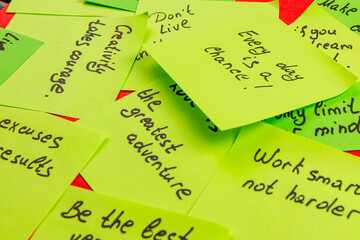 Don't
Live
Make
if you
dream
Every day
is a
chance!
Creativity
takes courage.
the
greatest
adventure
only limit
mind
excuses
results
Work smart
not harder
Be the best